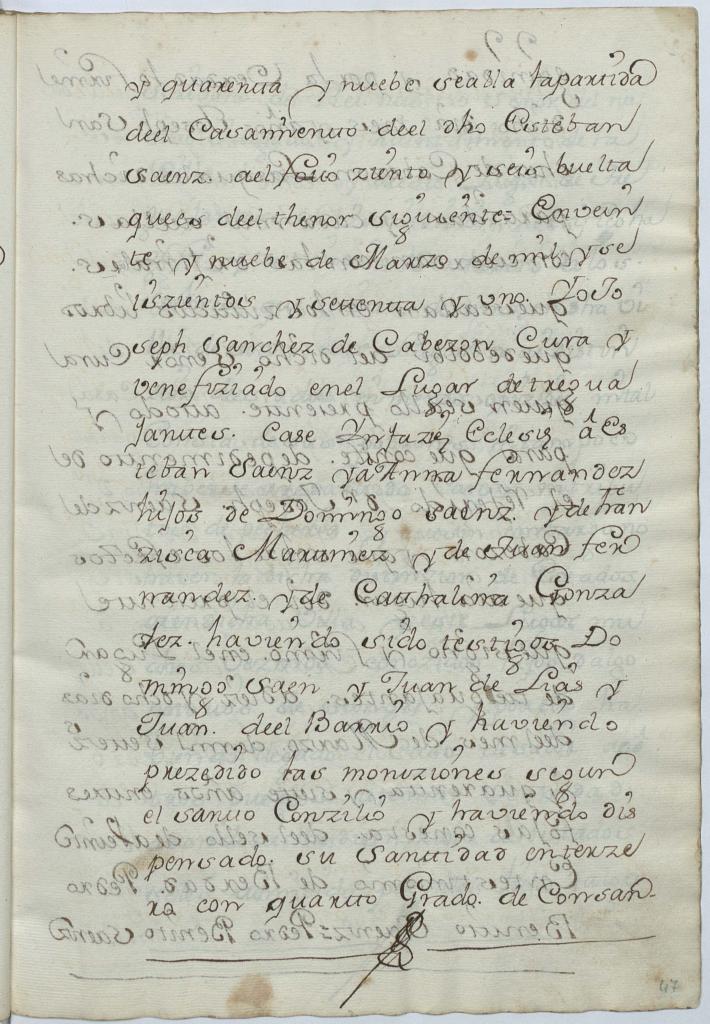 y quarenta y nuebe sealla lapartida
deel Casamiento deel dho Esteban
Saenz. ael folio ziento y seis buelta
quees deel thenor siguiente= Envein
te y nuebe de Marzo de mil y se
iszientos y settenta y uno. Yo Jo
seph Sanchez de Cabezon Cura y
venefiziado enel Lugar de tregua
Jantes. Case Ynfaziē Eclesiē â Es
teban Saenz yâ Anna fernandez
hijos de Domingo saenz. y de fran
zisca Martinez y de Juan fer
nandez. y de Catthalina Gonza
lez. haviendo sido testigos Do
mingo Saen y Juan de Lias y
Juan. deel Barrio y haviendo
prezedido las moniziones segun
el santto Conzilio y haviendo dis
pensado. su Santtidad enterze
ro con quartto Grado. de Consan-
47